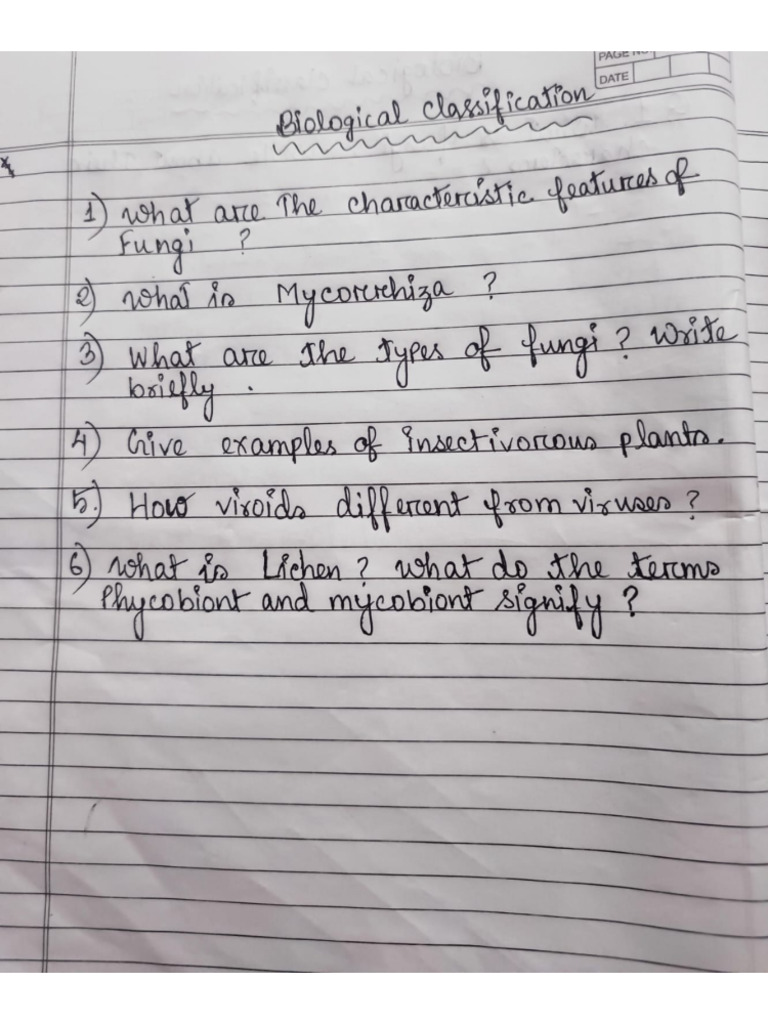 PAGE NO
DATE
Biological classification
1) What are The characteristic features of
Fungi ?
2) What is Mycorrhiza ?
3) What are the types of fungi ? Write
briefly .
4) Give examples of insectivorous plants.
5.) How viroids different from viruses ?
6) What is Lichen ? What do the terms
Phycobiont and mycobiont signify ?